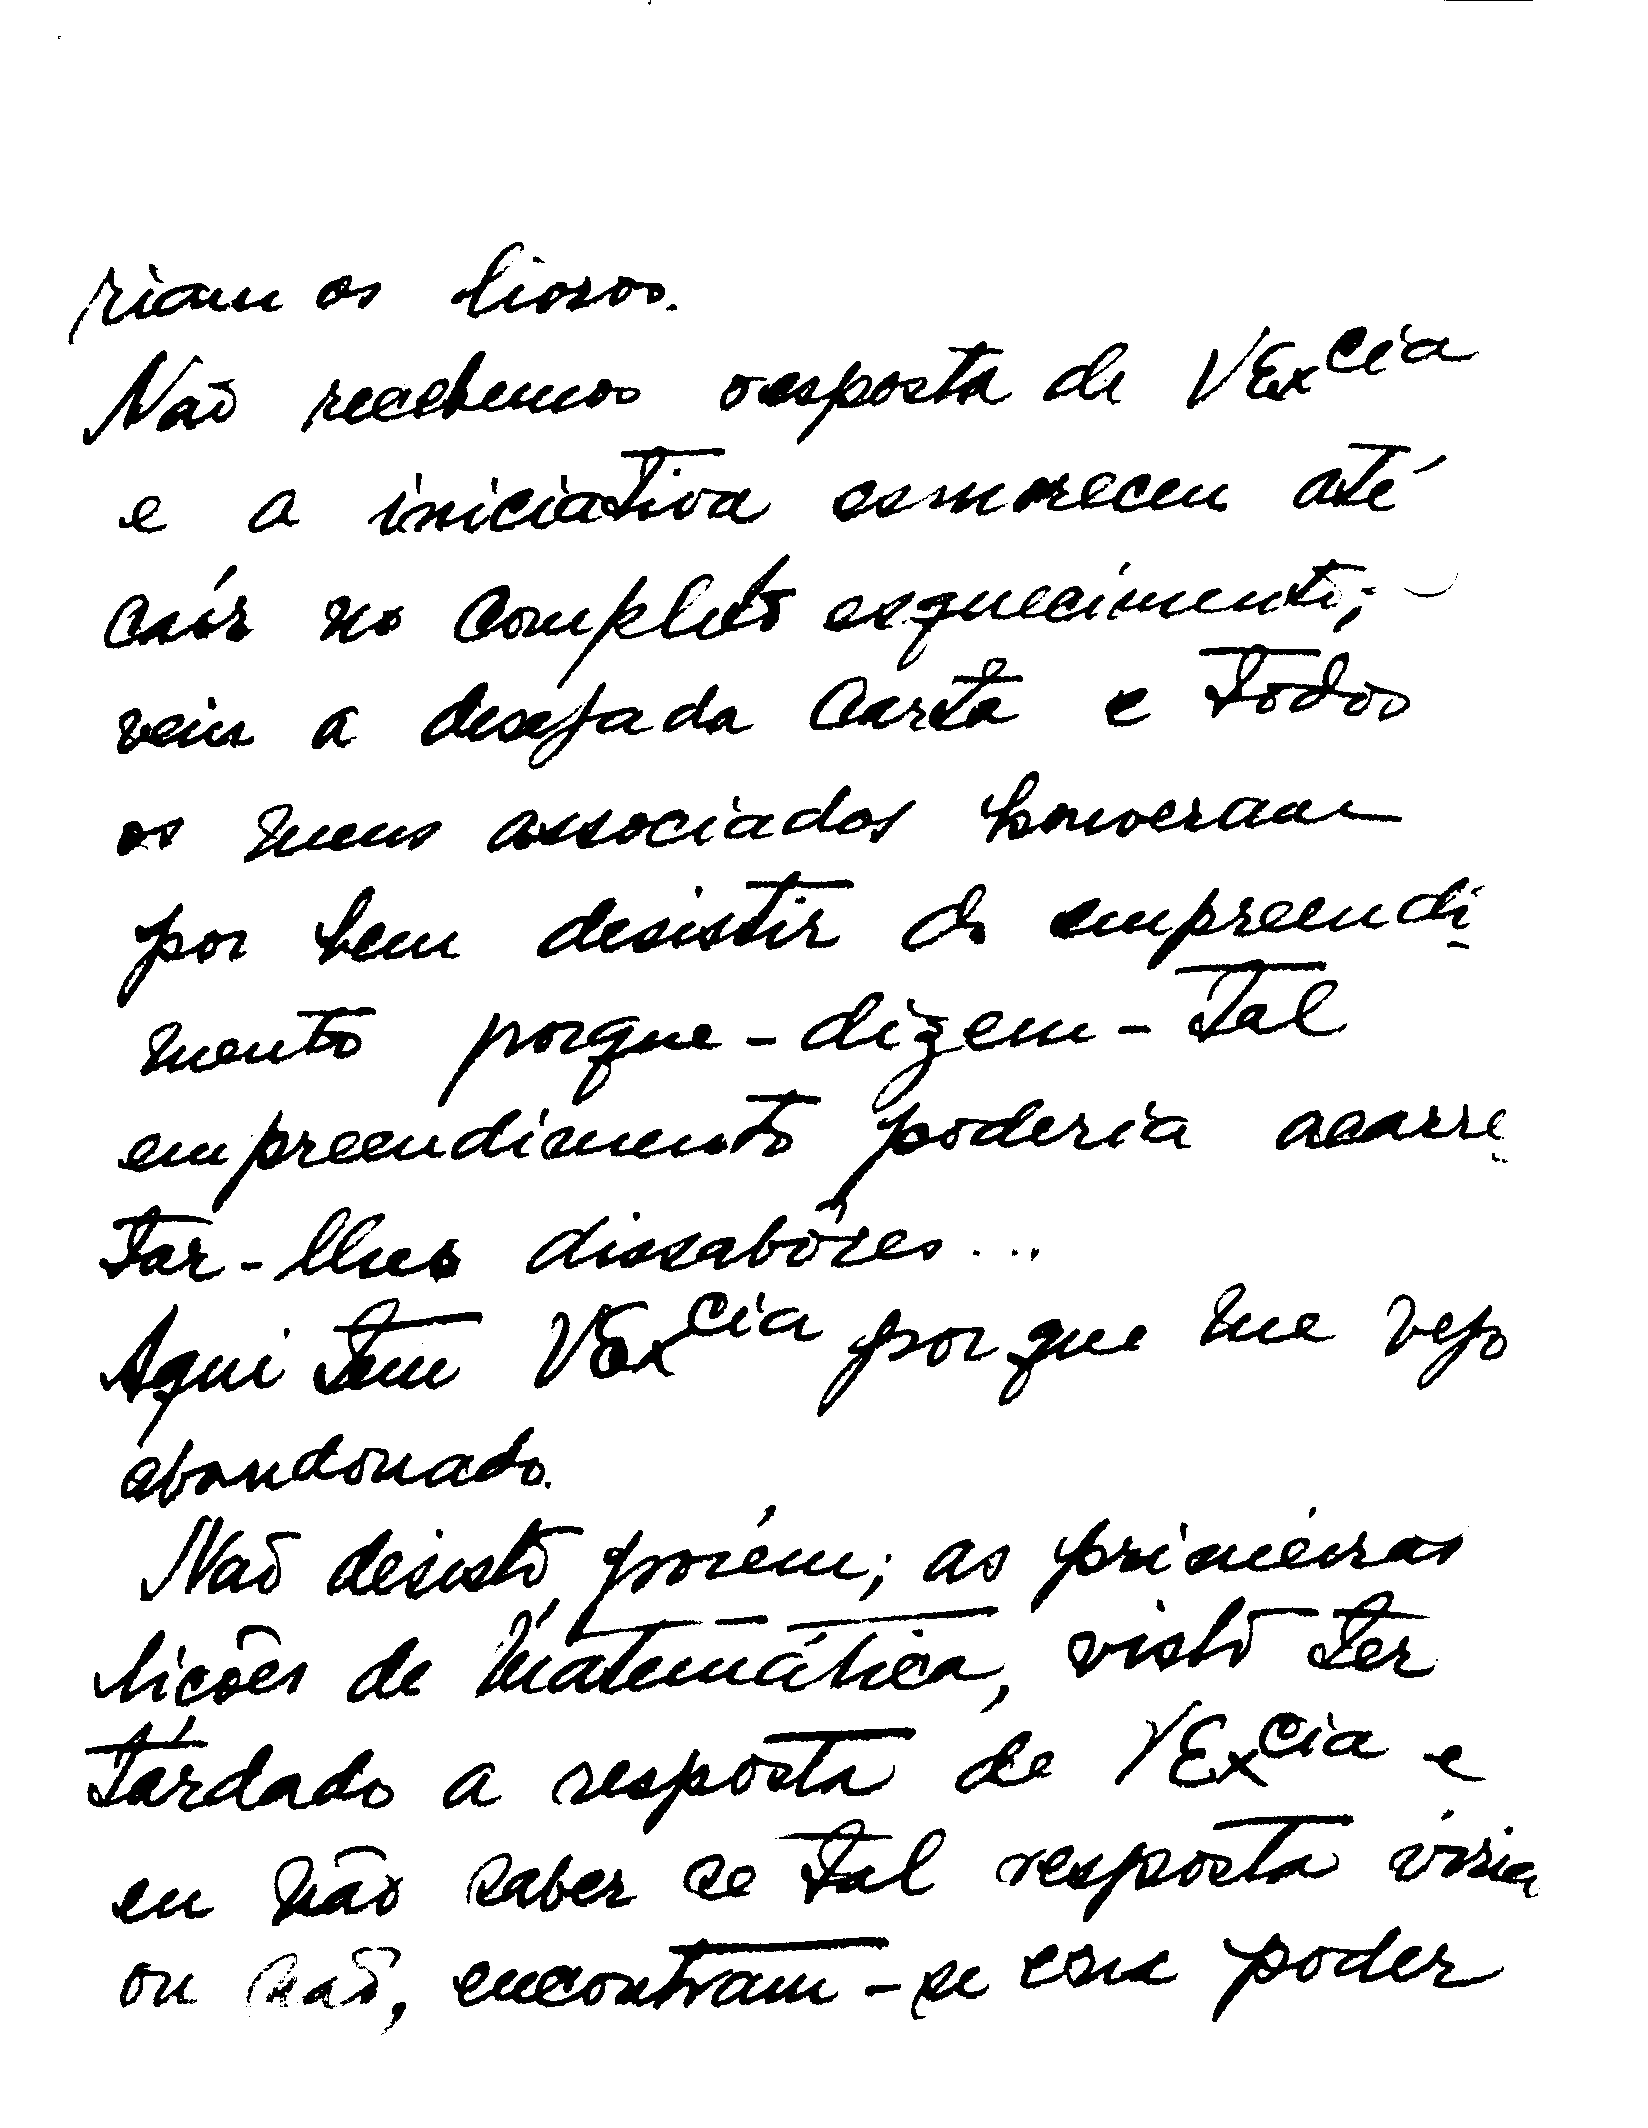 riam os livros.
Não recebemos resposta de VExcia
e a iniciativa esmoreceu até
caír no completo esquecimento;
veiu a desejada carta e todos
os meus associados houveram
por bem desistir do empreendi-
mento porque - dizem - tal
empreendimento poderia acarre-
tar-lhes dissabôres...
Aqui tem VExcia porque me vejo
abandonado.
Não desisto, porém; as primeiras
lições de Matemática, visto ter
tardado a resposta de VExcia e
eu não saber se tal resposta viria
ou não, encontram-se em poder